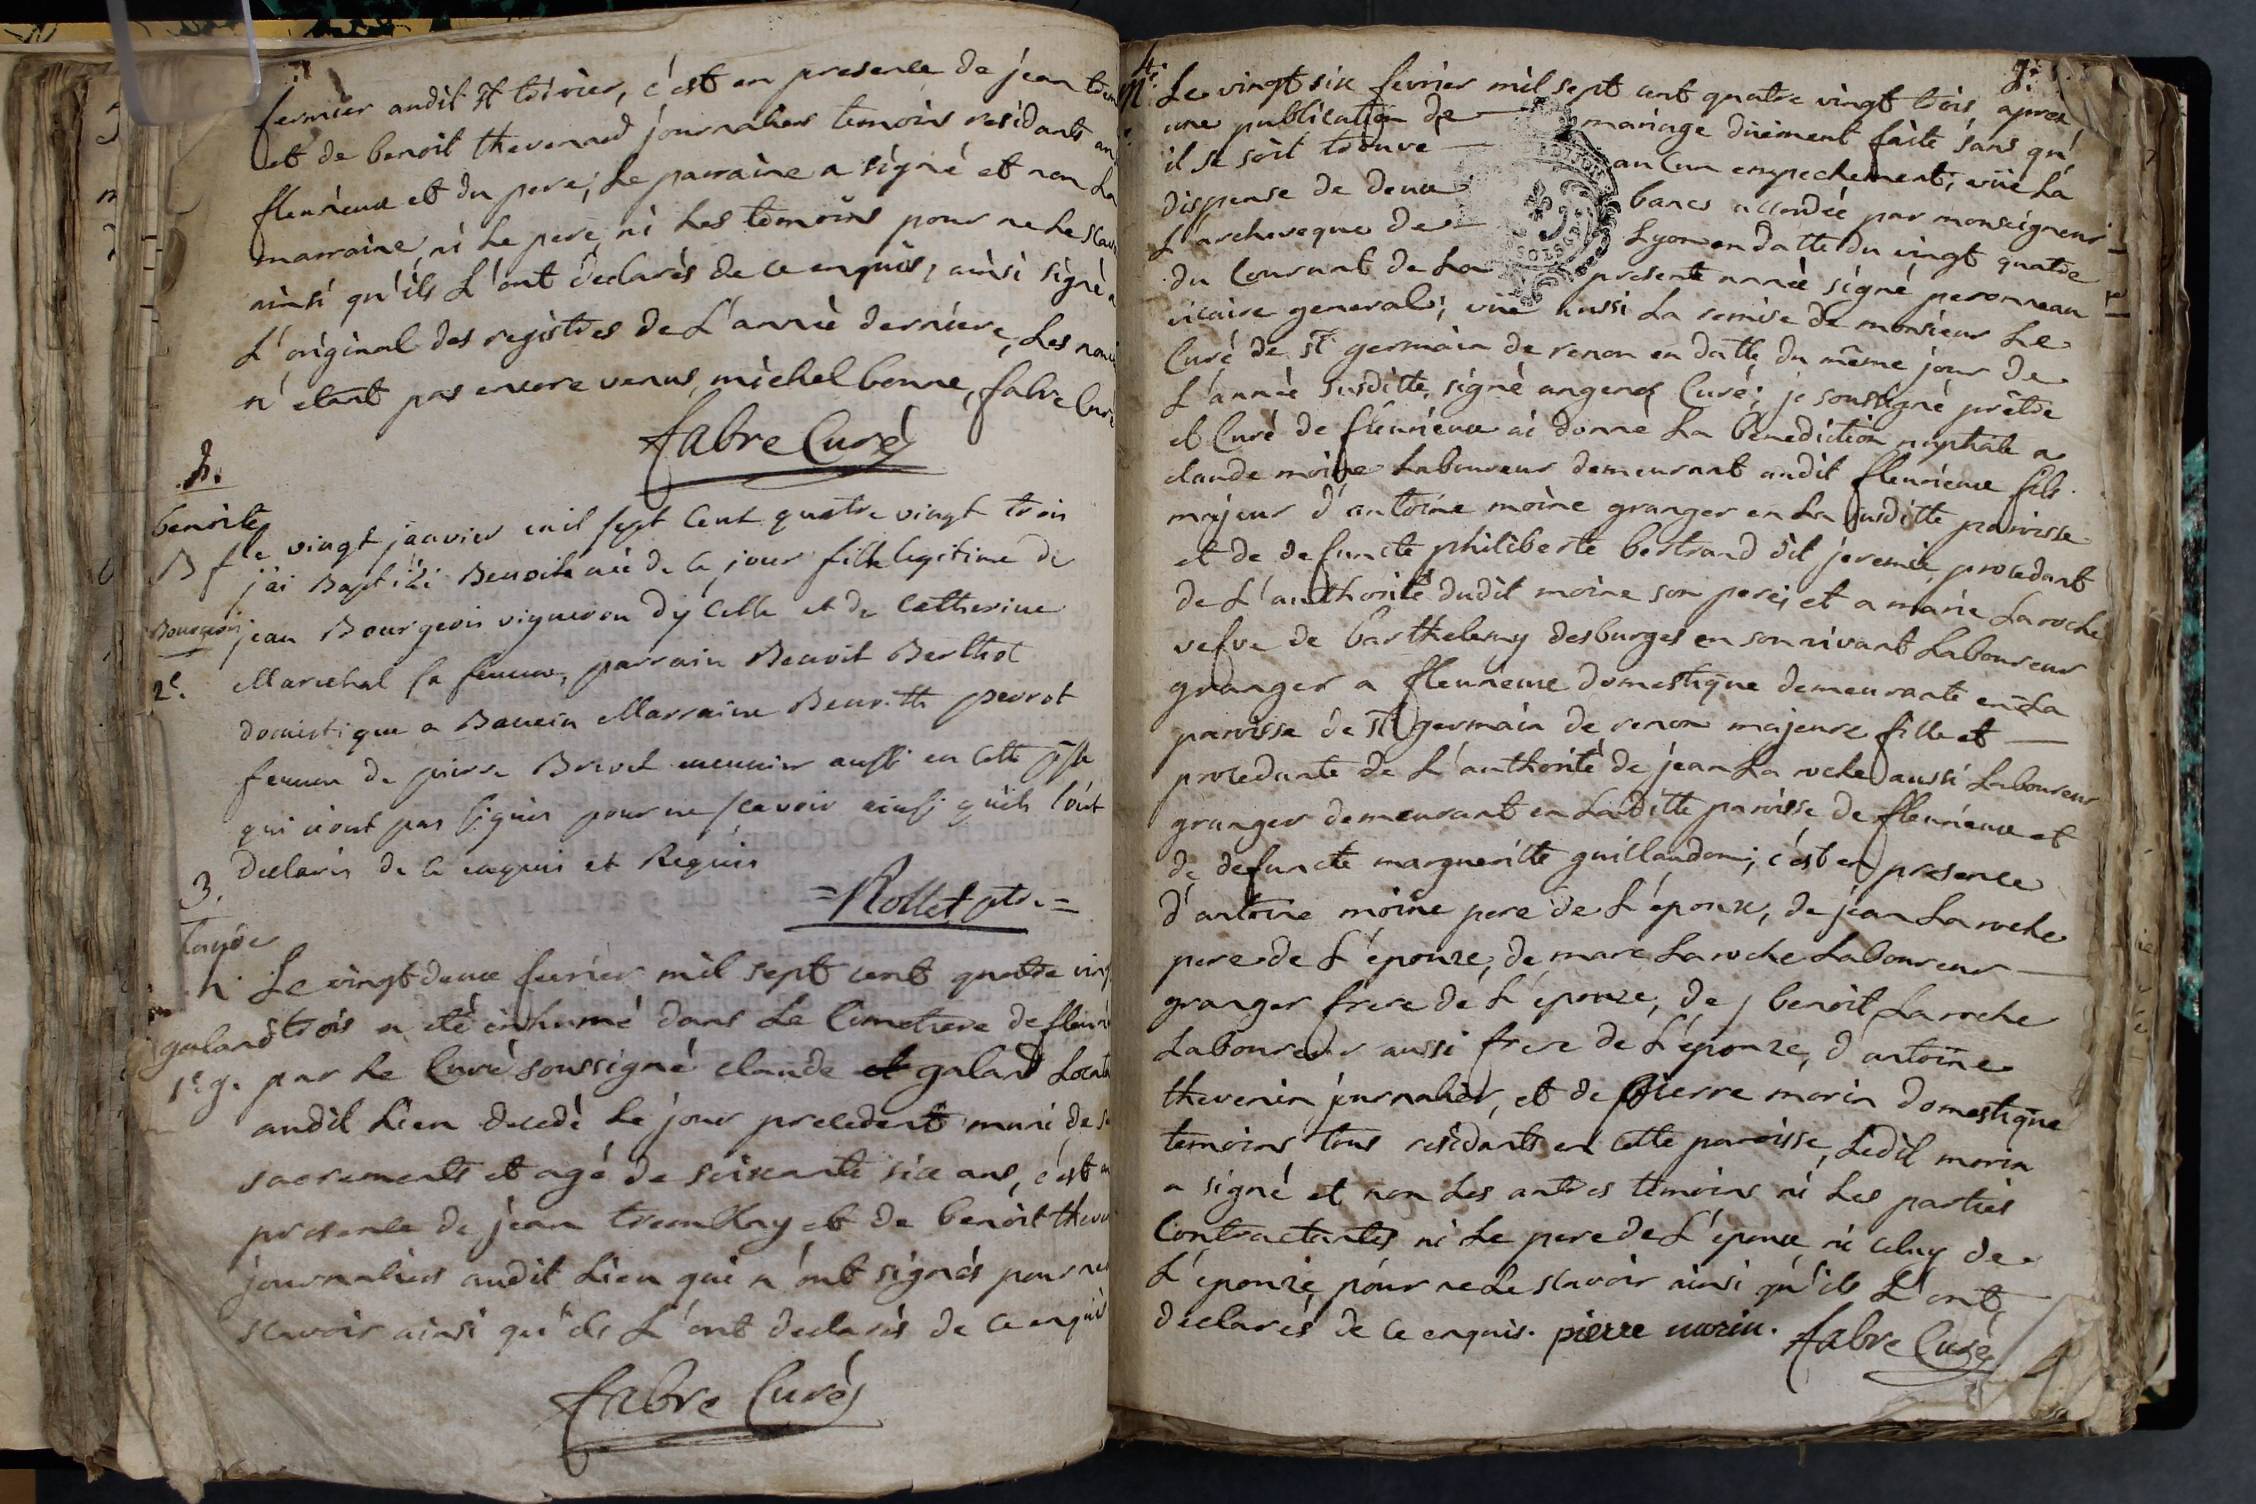 fermier audit st trivier, c'est en presence de jean
et de benoit thevenard journalier temoins residants
fleurieux et du pere; Le parraine a signé et non La
marraine, ni Le pere, ni Les temoins pour ne Le
ainsi qu'ils L'ont declarés de ce enquis, ainsi signé a
L'original des registres de L'année derniere, Les
n'etant pas encore venus, michel bonne, fabre Curé
fabre Curé
2.
benoite
B
Bourgeois
2e.
le vingt janvier mil sept cent quatre vingt trois
j'ai Baptisé Benoite née de ce jour fille legitime de
jean Bourgeois vigneron dy celle et de Catherine
Marechal sa femme, parrain Benoit Berthot
domestique a Banein Marraine Benoitte perrot
femme de pierre meunier aussi en cette psse
qui n'ont pas signés pour ne scavoir ainsi qu'ils l'ont
declarés de ce enquis et Requis
=Rollet ptr.=
3.
galand
1e. g.
Le vingt deux fevrier mil sept cent quatre
trois a été inhumé dans Le Cimetiere de
par Le Curé soussigné claude galand
audit Lieu decedé Le jour precedent muni de
sacrements et agé de soixante six ans, c'est
presence de jean tremblay et de benoit
journaliers audit Lieu qui n'ont signés pour
scavoir ainsi qu'ils L'ont declarés de ce enquis
fabre Curé
4e.
M.
Le vingt six fevrier mil sept cent quatre vingt trois, apres
une publication de mariage düement faite sans qu'
il se soit trouve aucun empechement, vüe La
dispense de deux bancs accordée par monseigneur
L'archeveque de Lyon en datte du vingt quatre
du Courant de La presente année signé peronneau
vicaire general; vüe aussi La remise de monsieur Le
Curé de st germain de renon en datte du même jour de
L'année susditte, signé Curé; je soussigné prêtre
et Curé de fleurieux ai donne La benediction nuptiale a
claude moine Laboureur demeurant audit fleurieux fils
majeur d'antoine moine granger en La susditte paroisse
et de defuncte philiberte bertrand dit jeremie, procedant
de L'authorité dudit moine son pere; et a marie Laroche
vefve de barthelemy desburges en son vivant Laboureur
granger a fleurieux domestique demeurante en La
paroisse de st germain de renon majeure fille et
procedante de L'authorité de jean La roche aussi Laboureur
granger demeurant en Laditte paroisse de fleurieux et
de defuncte margueritte guillaudon; c'est en presence
d'antoine moine pere de L'époux, de jean Laroche
pere de L'épouze, de marc Laroche Laboureur
granger frere de L'épouze, de benoit Laroche
Laboureur aussi frere de L'épouze, d'antoine
thevenin journalier, et de pierre morin domestique
temoins tous residants en cette paroisse, Ledit morin
a signé et non Les autres temoins ni Les parties
Contractantes ni Le pere de L'époux ni celuy de
L'épouze pour ne Le scavoir ainsi qu'ils L'ont
declarés de ce enquis. pierre morin. fabre Curé